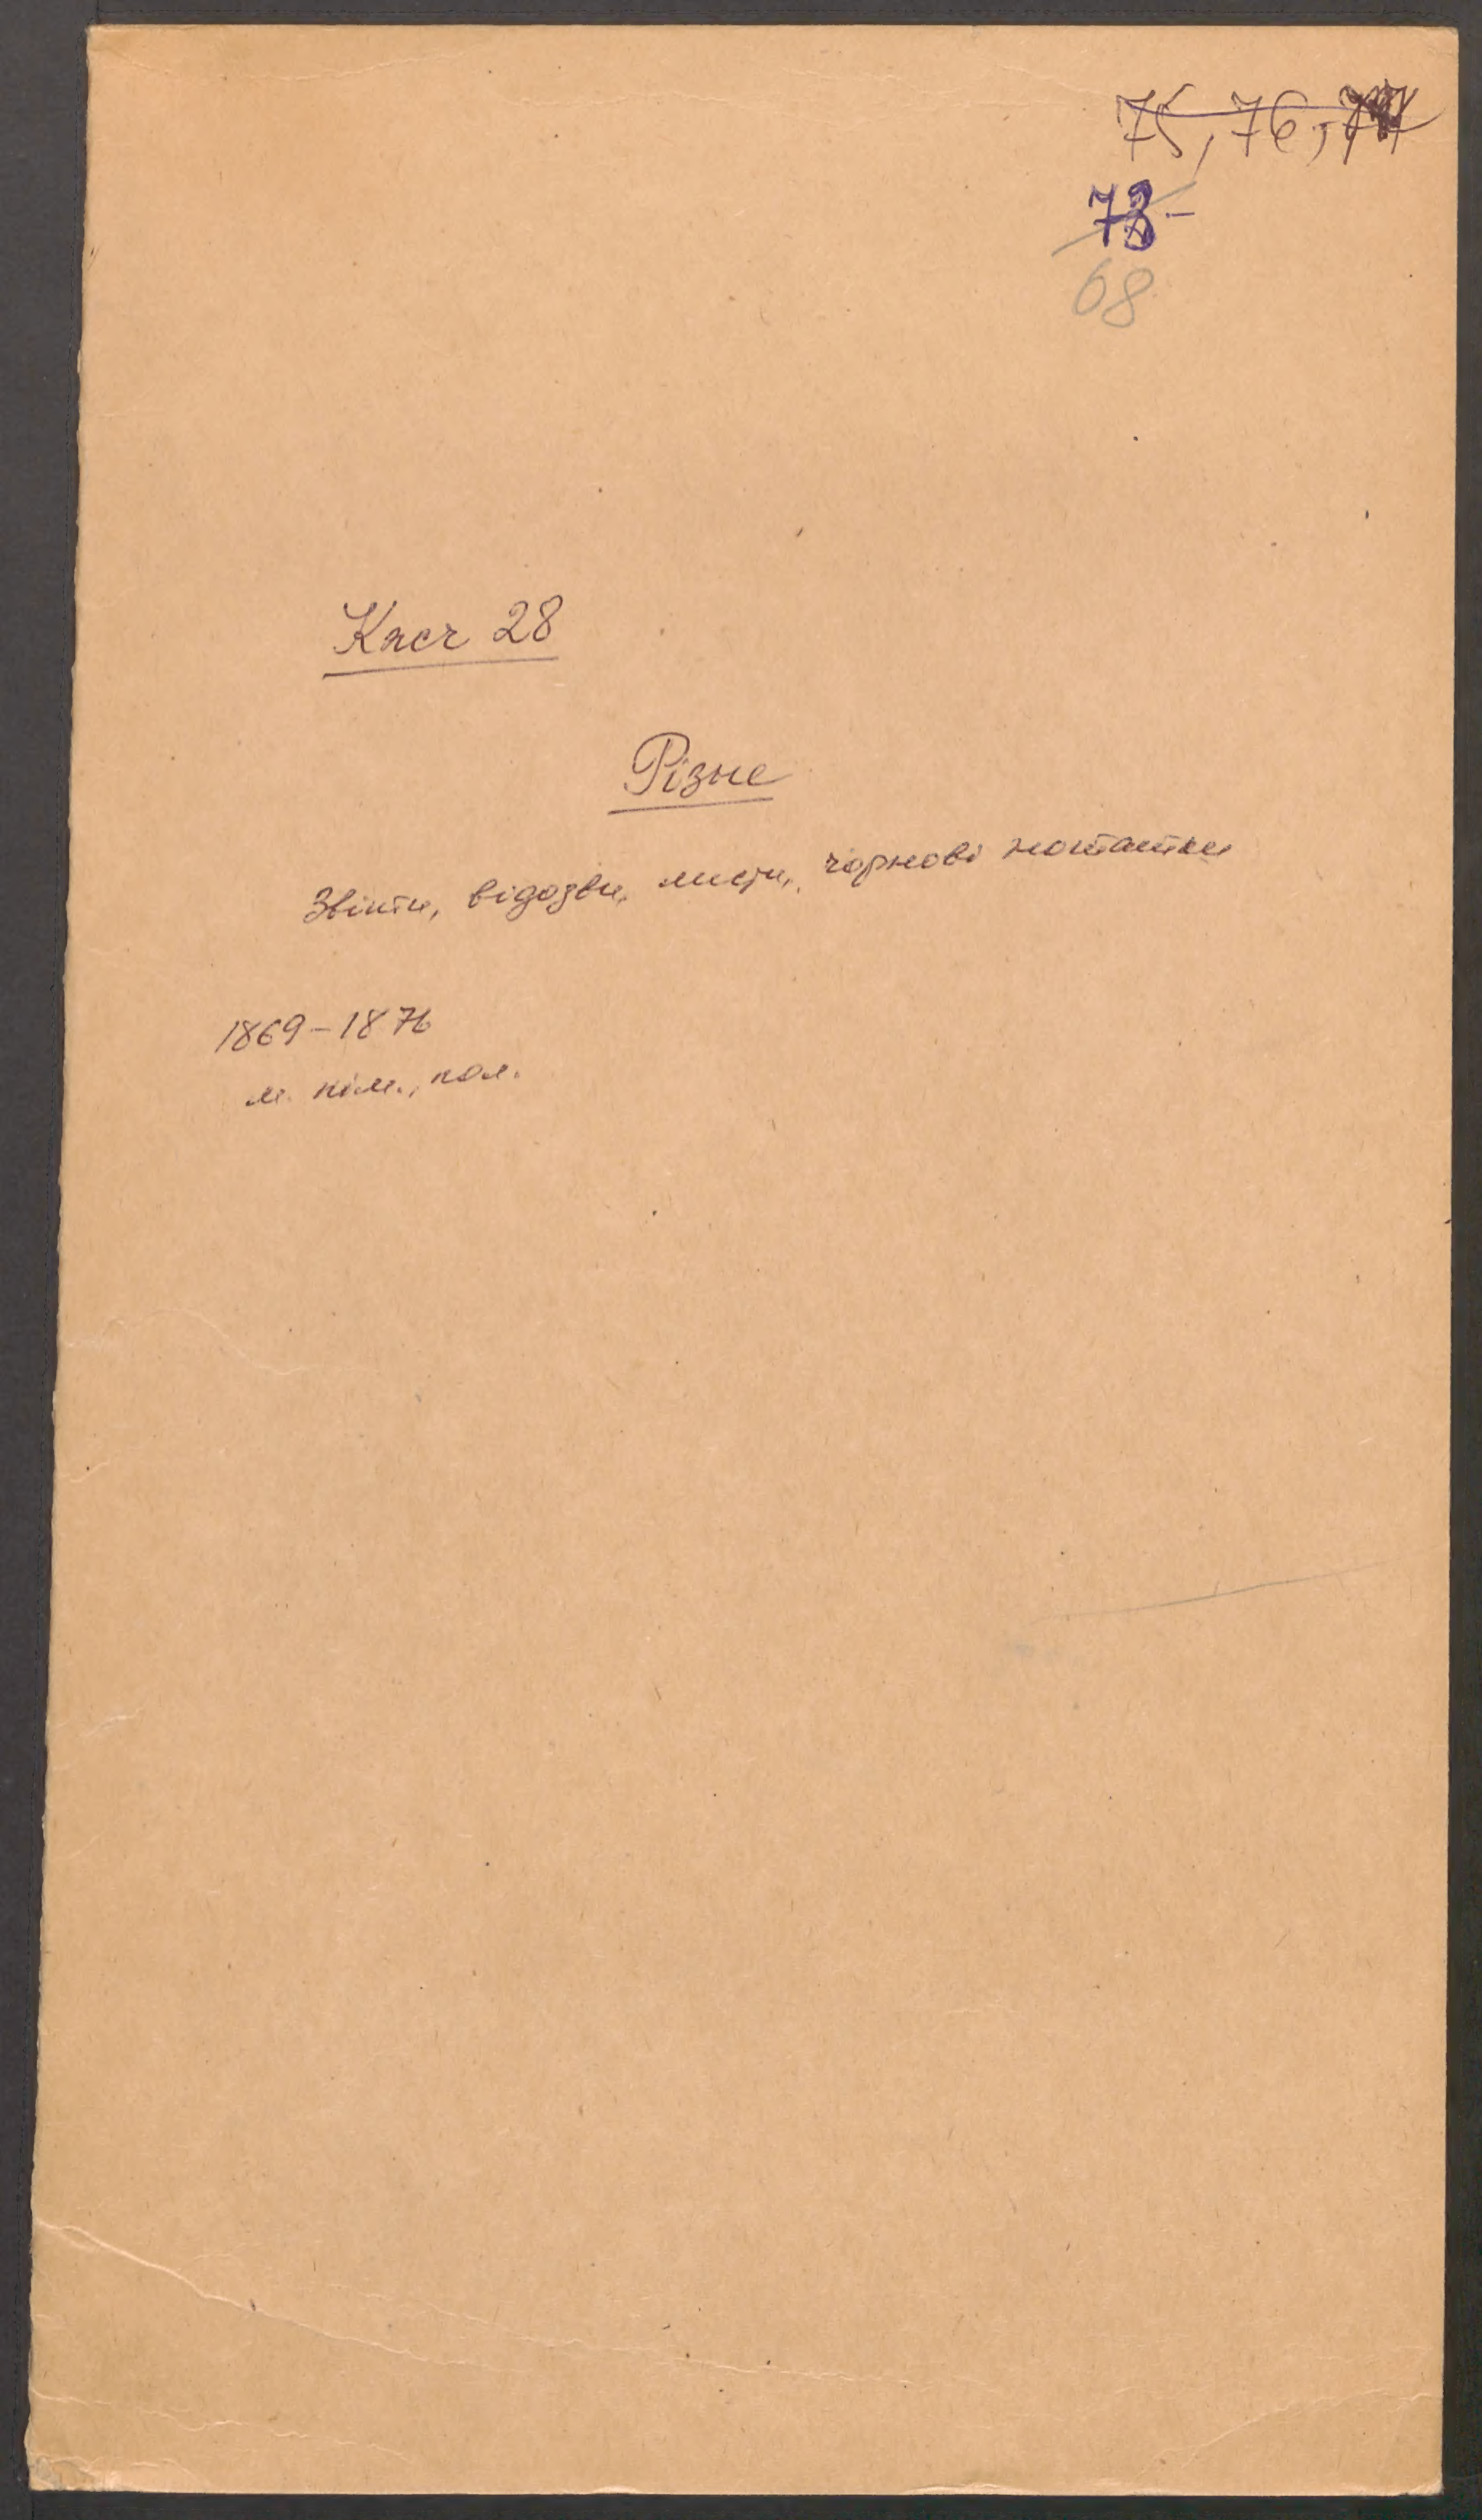 75, 76, 77
73-
68
Кмсч 28
Різне
Звіти, відозви, листи, чорнові нотатки
1869-1876
м. нім., пол.